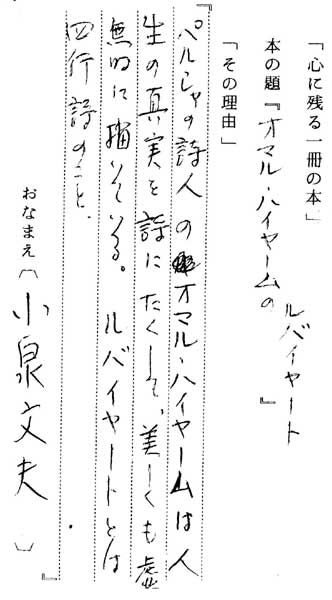 「心に残る一冊の本」
本の題『オマル・ハイヤームの
ルバイヤート
』
「その理由」
『パルシャの詩人のオマル・ハイヤームは人
生の真実を詩にたくして、美しくも虚
無的に描いている。ルバイヤートとは
四行詩のこと.
』
おなまえ〔小泉文夫〕